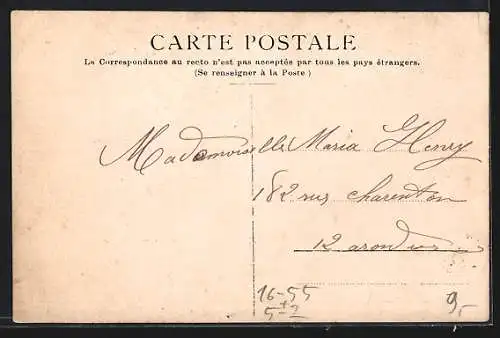 CARTE POSTALE
La Correspondance au recto n'est pas acceptée par tous les pays étrangers.
(Se renseigner à la Poste)
Mademoiselle Maria Henry
182 rus charenton
12 arondis
16-55
5+2
9,-